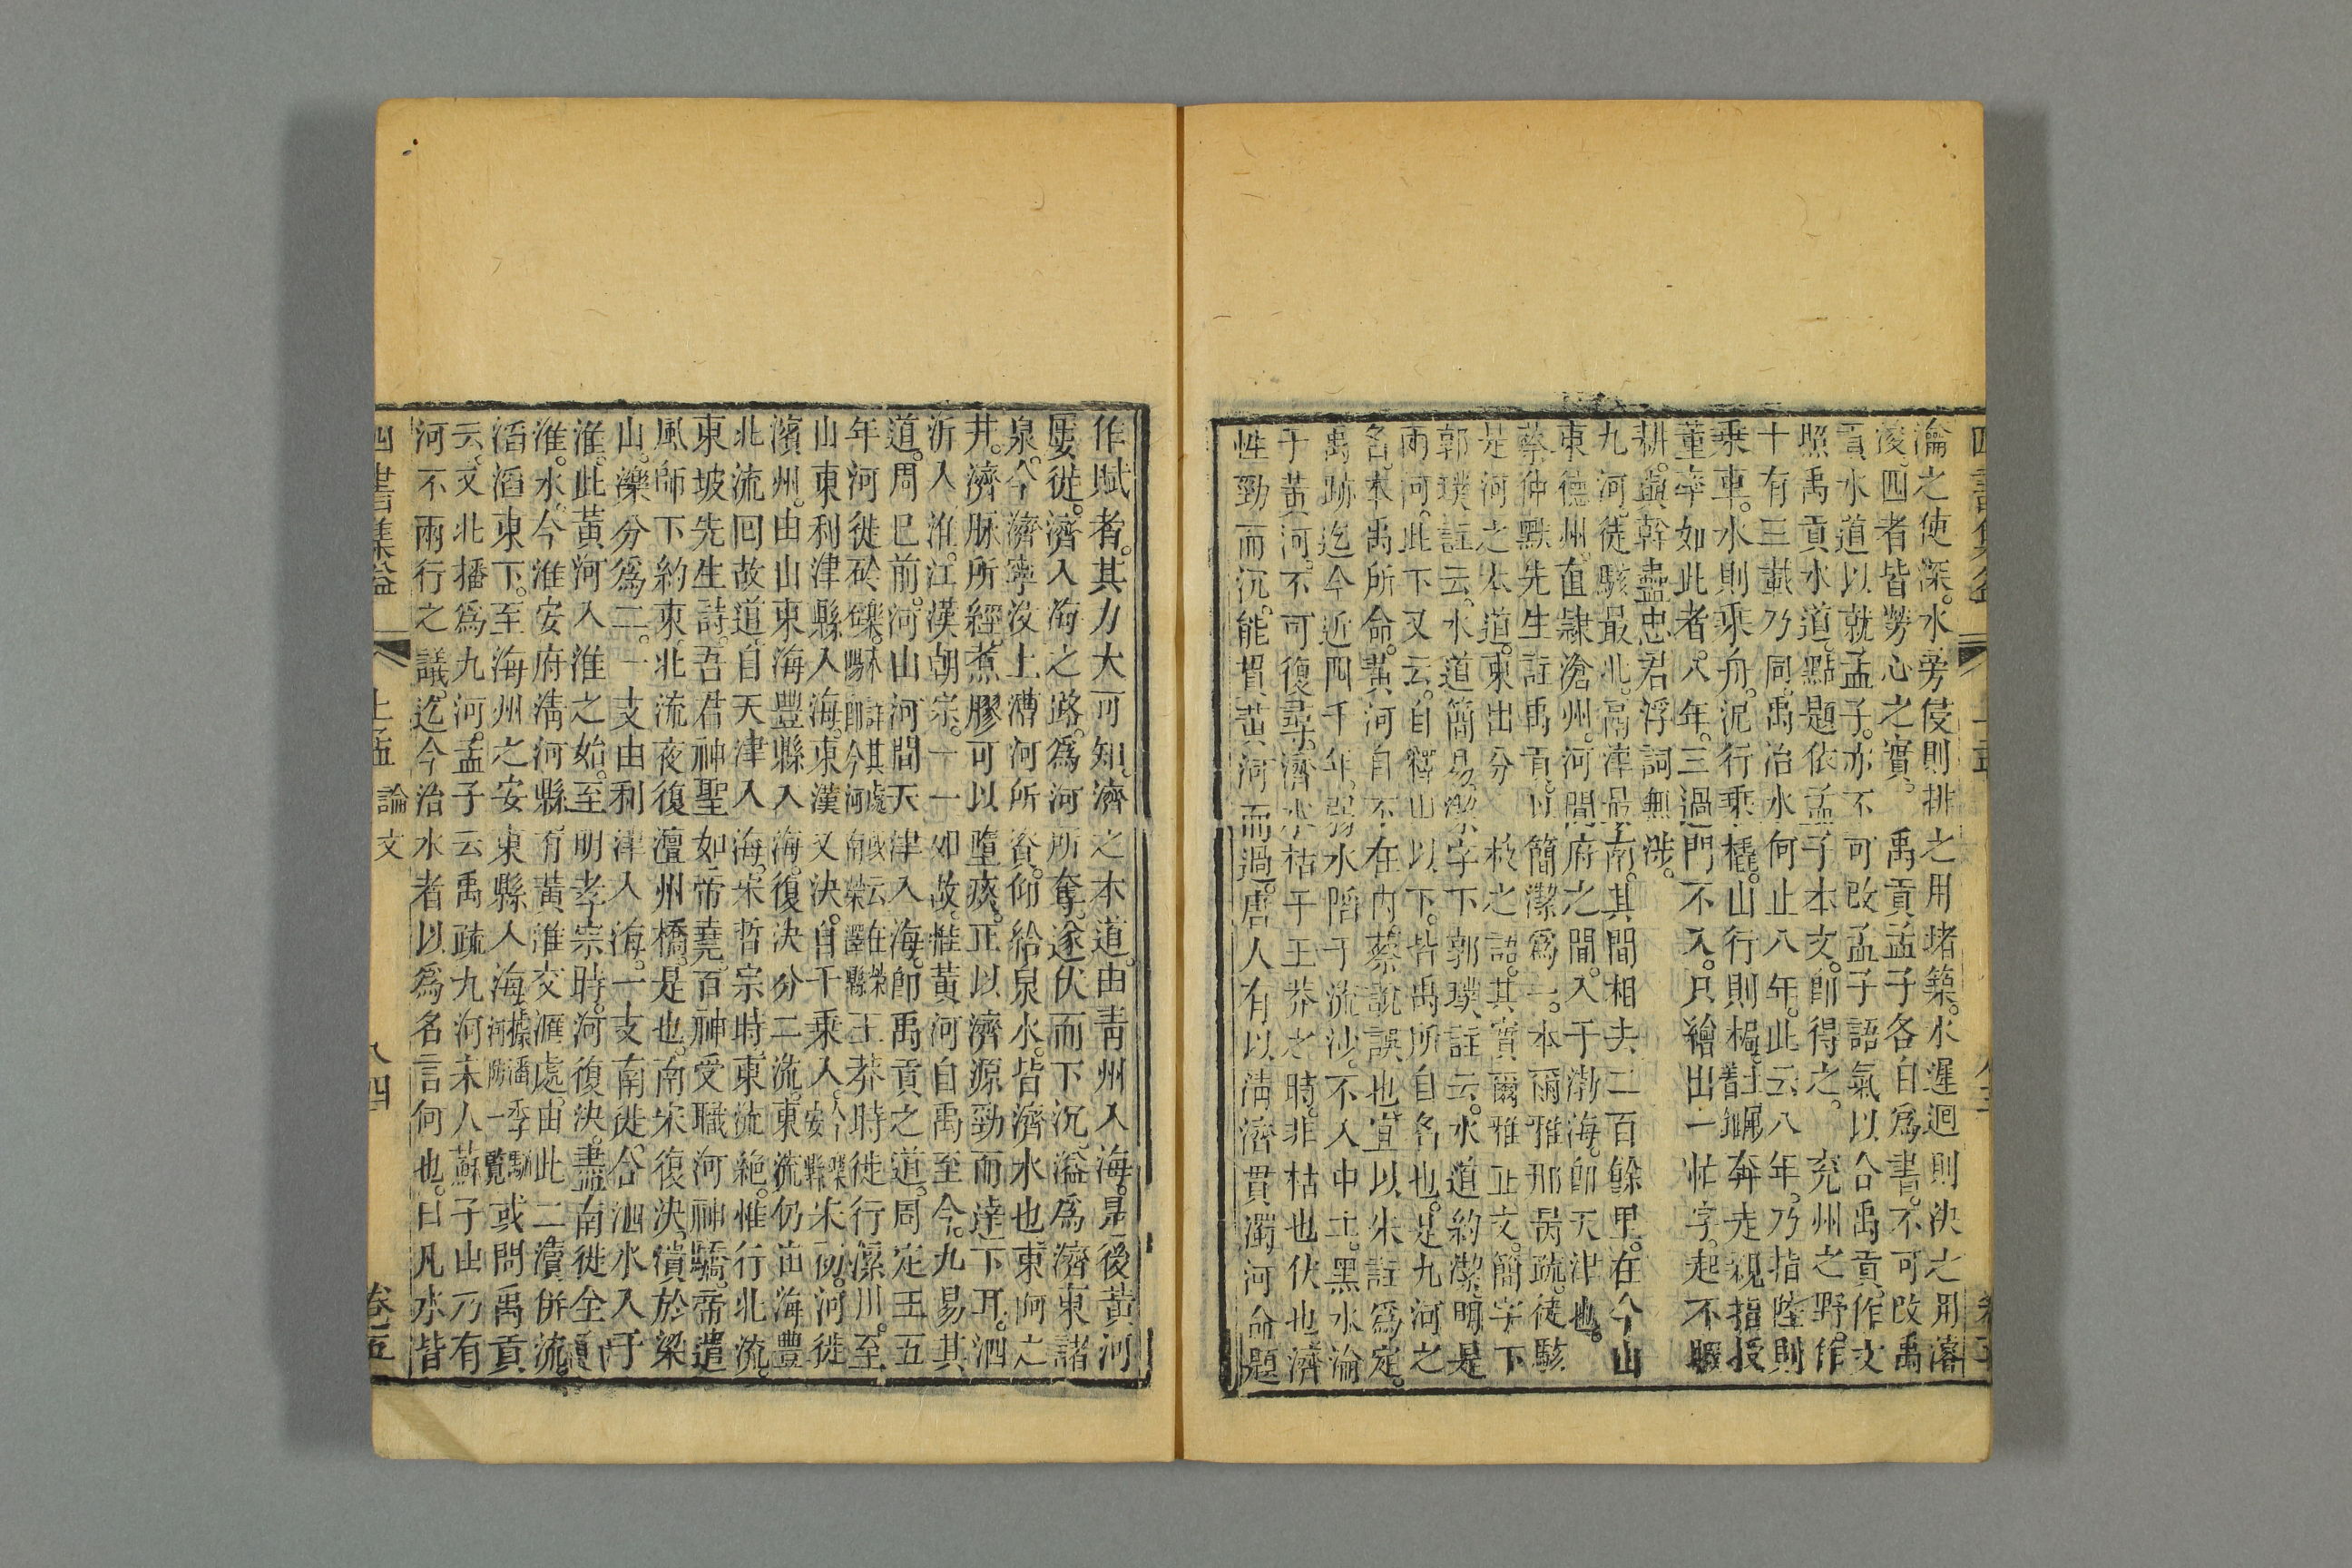 瀹之使深。水旁侵則排之用堵築。水遲迴則決之用濬
浚。四者皆勞心之實。禹貢孟子各自爲書。不可改禹
貢水道以就孟子。亦不可改孟子語氣以合禹貢。作文
照禹貢水道。點題依孟子本文。卽得之。兖州之野。作
十有三載乃同。禹治水何止八年。此云八年。乃指陸則
乘車。水則乘舟。泥行乘橇。山行則梮。胼奔走親指授
董率如此者。八年。三過門不入。只繪出一忙字。起不暇
耕。與幹蠱忠君浮詞無涉。
九河。徒駭最北。鬲津最南。其間相去二百餘里。在今山
東德州。直隸滄州。河間府之間。入于渤海。卽天津也。
蔡仲默先生註禹貢。以簡潔爲一。本爾雅邢昺疏。徒駭
是河之本道。東出分枝之語。其實爾雅正文。簡字下
郭璞註云。水道簡易。潔字下郭璞註云。水道約潔。明是
兩河。此下又云。自釋山以下。皆禹所自名也。是九河之
名。本禹所命。黃河自不在內。蔡說誤也。宜以朱註爲定。
禹跡迄今近四千年。弱水陷于流沙。不入中土。黑水淪
于黃河。不可復尋。濟水枯于王莽之時。非枯也伏也濟
性勁而沉。能貫黃河而過。唐人有以淸濟貫濁河命題
作賦者。其力大可知。濟之本道。由靑州入海。是後黃河
屢徙。濟入海之路。爲河所奪。遂伏而下沉。溢爲濟東諸
泉。今濟寧汶上漕河所資。仰給泉水。皆濟水也。東阿之
井。濟脉所經。煮膠可以墮痰。正以濟源勁而達下耳。泗
沂入淮。江漢朝宗。一一如故。惟黃河自禹至今。九易其
道。周已前。河山河間天津入海。卽禹貢之道。周定王五
年河徙砱礫。王莽時徙行漯川。至
山東利津縣入海。東漢又決。自千乘入。宋初。河徙
濱州。由山東海豐縣入海。復決分二流。東流仍由海豐
北流回故道。自天津入海。宋哲宗時東流絕。惟行北流。
東坡先生詩。吾君神聖如帝堯。百神受職河神驕。帝遣
風師下約束北流夜復澶州橋。是也。南宋復決。潰於梁
山。濼分爲二。一支由利津入海。一支南徙。合泗水入于
淮。此黃河入淮之始。至明孝宗時。河復決。盡南徙全
淮。水。今淮安府淸河縣。有黃淮交滙處。由此二瀆併流。
滔滔東下。至海州之安東縣入海據潘季馴河防一覽或問禹貢
云。又北播爲九河。孟子云禹疏九河宋人蘇子由乃有
河不兩行之議。迄今治水者以爲名言何也。曰凡水皆
四書集益
上孟
論文
八四
卷五